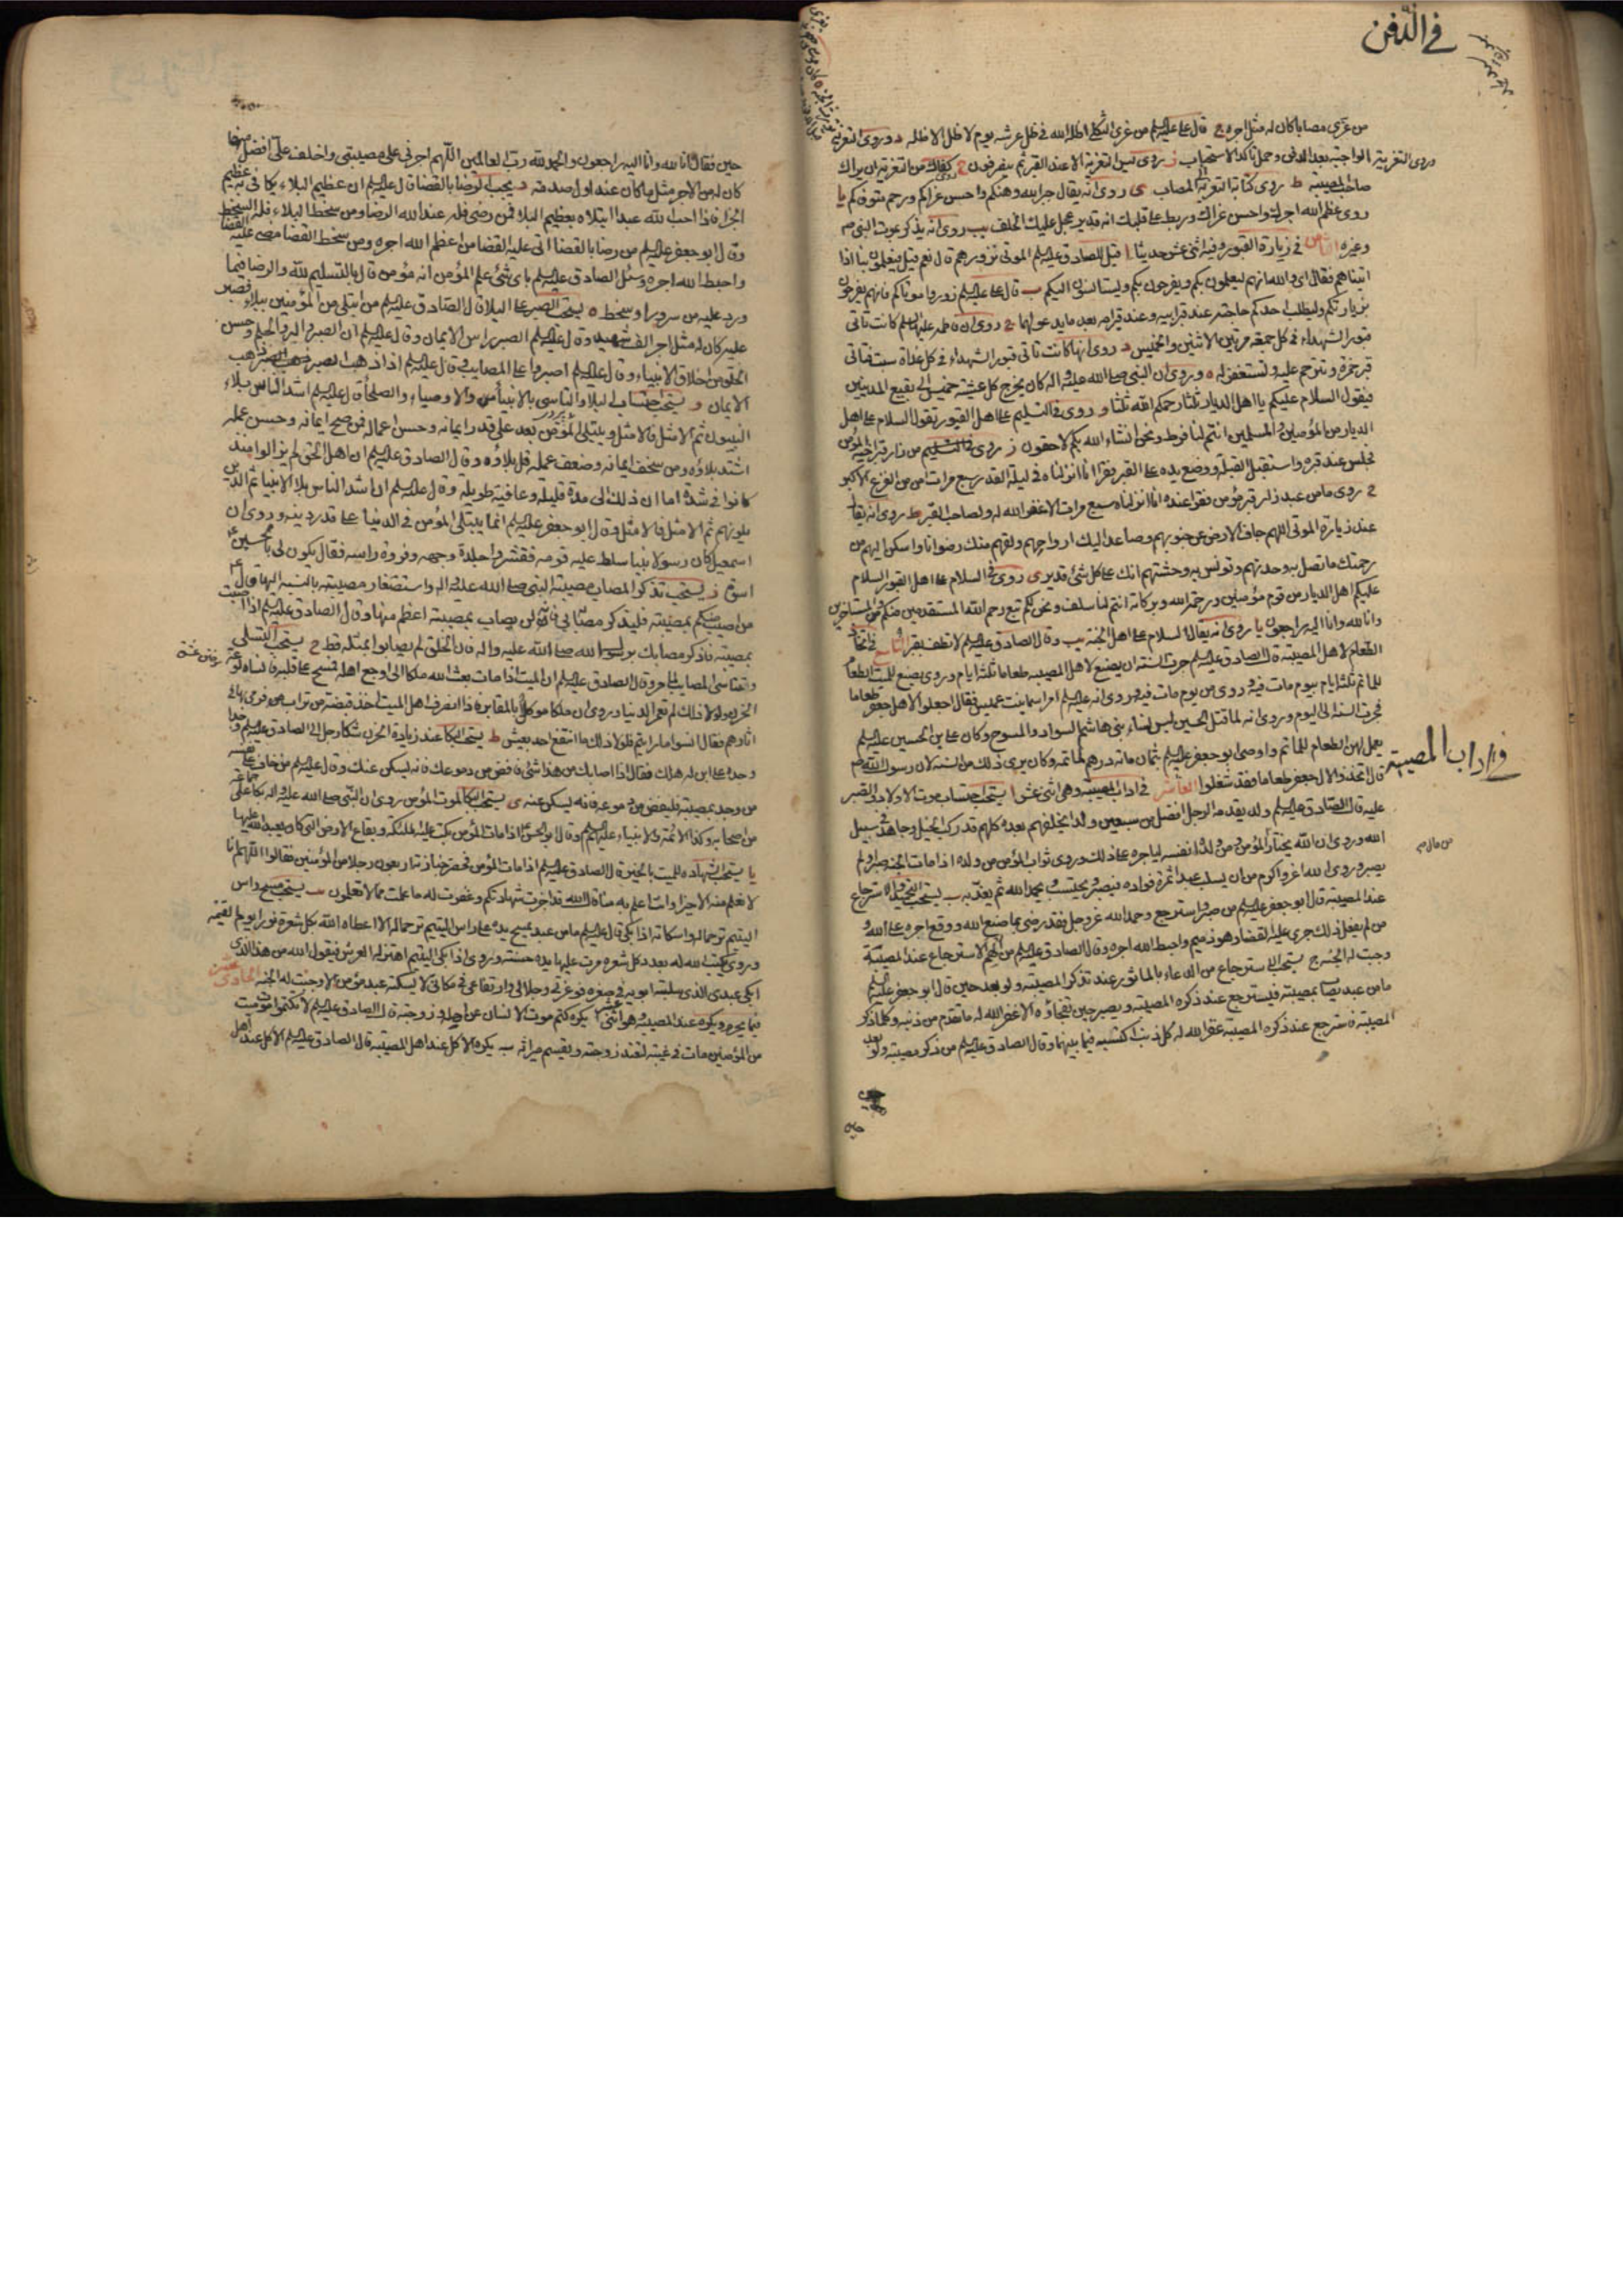 في الدفن
من عزى مصابا كان له مثل اجره ج قال علي عليه السلم من عزى الثكلى اظله الله في ظل عرشه يوم لا ظل الا ظله د وروى التعزية
الواجبة بعد الدفن وحمل تاكد الاستحباب ز روى ليس التعزية الا عند القبر ثم ينصرفون ح كفاك من التعزية ان يراك
صاحب المصيبة ط روى كتابة التعزية الى المصاب ى روى انه يقال جبر الله وهنكم واحسن عزاكم ورحم متوفاكم يا
روى عظم الله اجرك واحسن عزاك وربط على قلبك انه قدير عجل عليك بالخلف يب روى انه يذكر موت النبي ص
وغيره الثامن في زيارة القبور وفيه اثنى عشر حديثا ا قيل للصادق عليه السلم الموتى نزورهم قال نعم قيل فيعلمون بنا اذا
اتيناهم فقال اى والله انهم ليعلمون بكم ويفرحون بكم ويستانسون اليكم ب قال علي عليه السلم زوروا موتاكم فانهم يفرحون
بزيارتكم وليطلب احدكم حاجته عند قبر ابيه وعند قبر امه بعد ما يدعو لهما ج روى ان فاطمه عليها السلم كانت تاتى
قبور الشهداء في كل جمعة مرتين الاثنين والخميس د روى انها كانت تاتى قبور الشهداء في كل غداة سبت فتاتى
قبر حمزة وتترحم عليه وتستغفر له ه وروى ان النبي صلى الله عليه واله كان يخرج كل عشية خميس الى بقيع المدينين
فيقول السلام عليكم يا اهل الديار ثلثا رحمكم الله ثلثا و روى في التسليم على اهل القبور تقول السلام على اهل
الديار من المؤمنين والمسلمين انتم لنا فرط ونحن انشاء الله بكم لاحقون ز روى
فجلس عند قبره واستقبل القبلة ووضع يده على القبر فقرا انا انزلناه في ليلة القدر سبع مرات امن من الفزع الاكبر
ح روى ما من عبد زار قبر مؤمن فقرا عنده انا انزلناه سبع مرات الا غفر الله له ولصاحب القبر ط روى انه يقال
عند زيارة الموتى اللهم جاف الارض عن جنوبهم وصاعد اليك ارواحهم ولقهم منك رضوانا واسكن اليهم من
رحمتك ما تصل به وحدتهم وتونس به وحشتهم انك على كل شئ قدير ى روى في السلام على اهل القبور السلام
عليكم اهل الديار من قوم مؤمنين ورحمة الله وبركاته انتم لنا سلف ونحن لكم تبع رحم الله المستقدمين منكم والمستاخرين
وانا لله وانا اليه راجعون يا روى انه يقال السلام على اهل الجنة يب وقال الصادق عليه السلم التاسع في اتخاذ
الطعام لاهل المصيبة قال الصادق عليه السلم جرت السنة ان يصنع لاهل المصيبه طعاما ثلثة ايام وروى يصنع للميت الطعام
للماتم ثلثة ايام بيوم مات فيه وروى من يوم مات فيه وروى انه عليه السلم امر اسما بنت عميس فقال اجعلوا لاهل جعفر طعاما
فجرت السنة الى اليوم وروى انه لما قتل الحسين لبس نساء بنى هاشم السواد والمسوح وكان علي بن الحسين عليه السلم
يعمل لهن الطعام للماتم واوصى ابو جعفر عليه السلم بثمان مائة درهم لماتمه وكان يرى ذلك من السنة لان رسول الله ص
قال اتخذوا لال جعفر طعاما فقد شغلوا العاشر في اداب المصيبة وهي اثنى عشر ا يستحب احتساب موت الاولاد والصبر
عليه قال الصادق عليه السلم ولد يقدمه الرجل افضل من سبعين ولدا يخلفهم بعده كلهم قد ركب الخيل وجاهد في سبيل
الله وروى ان الله يختار المؤمن ومن ولده انفسه لياجره على ذلك وروى ثواب المؤمن من ولده اذا مات الجنة صبر او لم
يصبر وروى الله اعز واكرم من ان يسلب عبدا ثمرة فواده فيصبر ويحتسب ويحمد الله ثم يعذبه ب يستحب التحميد والاسترجاع
عند المصيبة قال ابو جعفر عليه السلم من صبر واسترجع وحمد الله عز وجل فقد رضى بما صنع الله ووقع اجره على الله و
من لم يفعل ذلك جرى عليه القضا وهو ذميم واحبط الله اجره وقال الصادق عليه السلم من الهم الاسترجاع عند المصيبة
وجبت له الجنه ج يستحب الاسترجاع من الدعاء بالماثور عند تذكر المصيبة ولو بعد حين قال ابو جعفر عليه السلم
ما من عبد يصاب بمصيبة فيسترجع عند ذكره المصيبة ويصبر حين تفجاؤه الا غفر الله له ما تقدم من ذنبه وكلما ذكر
المصيبة فاسترجع عند ذكره المصيبة غفر الله له كل ذنب اكتسبه فيما بينهما وقال الصادق عليه السلم من ذكر مصيبته ولو بعد
في اداب المصيبة
حين فقال انا لله وانا اليه راجعون والحمد لله رب العالمين اللهم اجرني على مصيبتي واخلف علي افضل منها
كان له من الاجر مثل ما كان عند اول صدمته د يجب الرضا بالقضا قال عليه السلم ان عظيم البلاء يكافى به عظيم
الجزا فاذا احب الله عبدا ابتلاه بعظيم البلا فمن رضى فله عند الله الرضا ومن سخط البلاء فله السخط
وقال ابو جعفر عليه السلم من رضا بالقضا اتى عليه القضا من اعظم الله اجره ومن سخط القضا مضى عليه القضا
واحبط الله اجره وسئل الصادق عليه السلم باى شئ علم المؤمن انه مؤمن قال بالتسليم لله والرضا فيما
ورد عليه من سرور او سخط ه يستحب الصبر على البلا قال الصادق عليه السلم من ابتلى من المؤمنين ببلاء فصبر
عليه كان له مثل اجر الف شهيد وقال عليه السلم الصبر راس الايمان وقال عليه السلم ان الصبر والبر والحلم وحسن
الخلق من اخلاق الانبياء وقال عليه السلم اصبروا على المصايب وقال عليه السلم اذا ذهب الصبر ذهب
الايمان و يستحب احتساب البلا والتاسى بالانبيا والاوصياء والصلحا قال عليه السلم اشد الناس بلاء
النبيون ثم الامثل فالامثل ويبتلى المؤمن بعد على قدر ايمانه وحسن اعماله فمن صح ايمانه وحسن عمله
اشتد بلاؤه ومن سخف ايمانه وضعف عمله قل بلاؤه وقال الصادق عليه السلم ان اهل الحق لم يزالوا منذ
كانوا في شدة اما ان ذلك الى مدة قليلة وعافية طويله وقال عليه السلم ان اشد الناس بلاء الانبيا ثم الذين
يلونهم ثم الامثل فالامثل وقال ابو جعفر عليه السلم انما يبتلى المؤمن في الدنيا على قدر دينه وروى ان
اسمعيل كان رسولا نبيا سلط عليه قومه فقشروا جلدة وجهه وفروة راسه فقال يكون لى بالحسين
اسوة ز يستحب تذكر المصاب مصيبة النبي صلى الله عليه واله واستصغار مصيبته بالنسبة اليها قال
من اصيب منكم بمصيبة فليذكر مصابى فانه لن يصاب بمصيبة اعظم منها وقال الصادق عليه السلم اذا اصبت
بمصيبة فاذكر مصابك برسول الله صلى الله عليه واله فان الخلق لم يصابوا بمثله قط ح يستحب التسلى
وتناسى المصايب وقال الصادق عليه السلم ان الميت اذا مات بعث الله ملكا الى اوجع اهله فمسح على قلبه فانساه لوعة
الحزن ولولا ذلك لم تعمر الدنيا وروى ان ملكا موكلا بالمقابر فاذا انصرف اهل الميت اخذ قبضة من تراب فرمى بها في
اثارهم فقال انسوا ما رايتم فلولا ذلك ما انتفع احد بعيش ط يستحب البكا عند زيادة الحزن شكا رجل الى الصادق عليه السلم
وجدا على ابن له هلك فقال اذا اصابك من هذا شئ فافض من دموعك فانه يسكن عنك وقال عليه السلم من خاف على نفسه
من وجد بمصيبة فليفض من دموعه فانه يسكن عنه ى يستحب البكا لموت المؤمن روى ان النبي صلى الله عليه واله بكا على
من اصحابه وكذا الائمة والانبياء عليهم السلم وقال ابو الحسن اذا مات المؤمن بكت عليه الملئكة وبقاع الارض التي كان يعبد الله عليها
يا يستحب الشهاده للميت بالخير قال الصادق عليه السلم اذا مات المؤمن فحضر جنازته اربعون رجلا من المؤمنين فقالوا اللهم انا
لا نعلم منه الا خيرا وانت اعلم به منا قال الله قد اجزت شهادتكم وغفرت له ما علمت مما لا تعلمون يب يستحب مسح راس
اليتيم ترحما له واسكاته اذا بكى قال عليه السلم ما من عبد يمسح يده على راس اليتيم ترحما له الا اعطاه الله بكل شعرة نورا يوم القيمة
وروى يكتب الله له بعدد كل شعره مرت عليها يده حسنة وروى اذا بكى اليتيم اهتز له العرش فيقول الله من هذا الذى
ابكى عبدى الذى سلبته ابويه في صغره فوعزتى وجلالى وارتفاعى في مكانى لا يسكته عبد مؤمن الا وجبت له الجنه الحادى عشر
فيما يحرم ويكره عند المصيبة وهو اثنى عشر ا يكره كتم موت الانسان عن اهله وزوجته قال الصادق عليه السلم لا تكتموا موت ميت
من المؤمنين مات في غيبته لتعتد زوجته ويقسم ميراثه ب يكره الاكل عند اهل المصيبة قال الصادق عليه السلم الاكل عند اهل